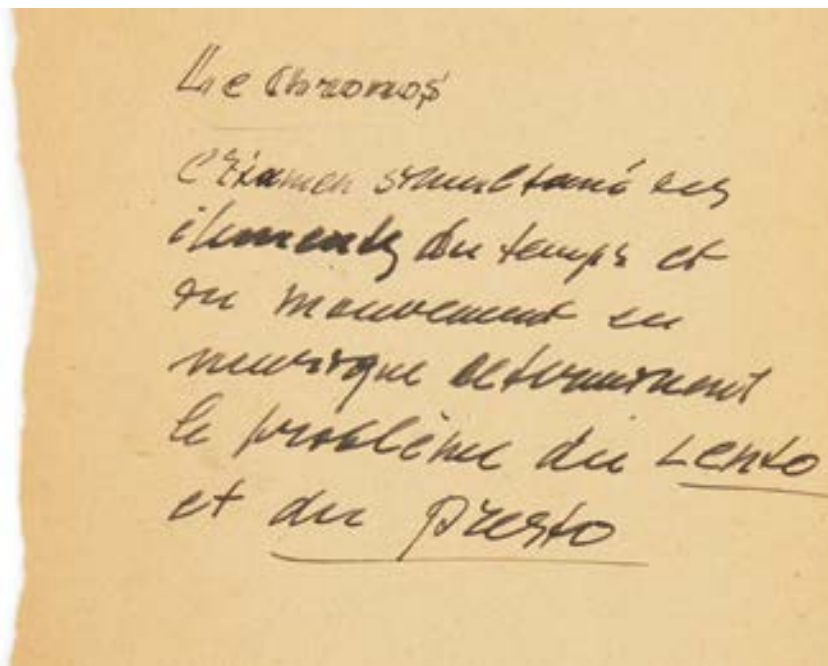 Le Chronos
L'Examen simultané des
éléments du temps et
du mouvement en
musique déterminent
le problème du Lento
et du presto